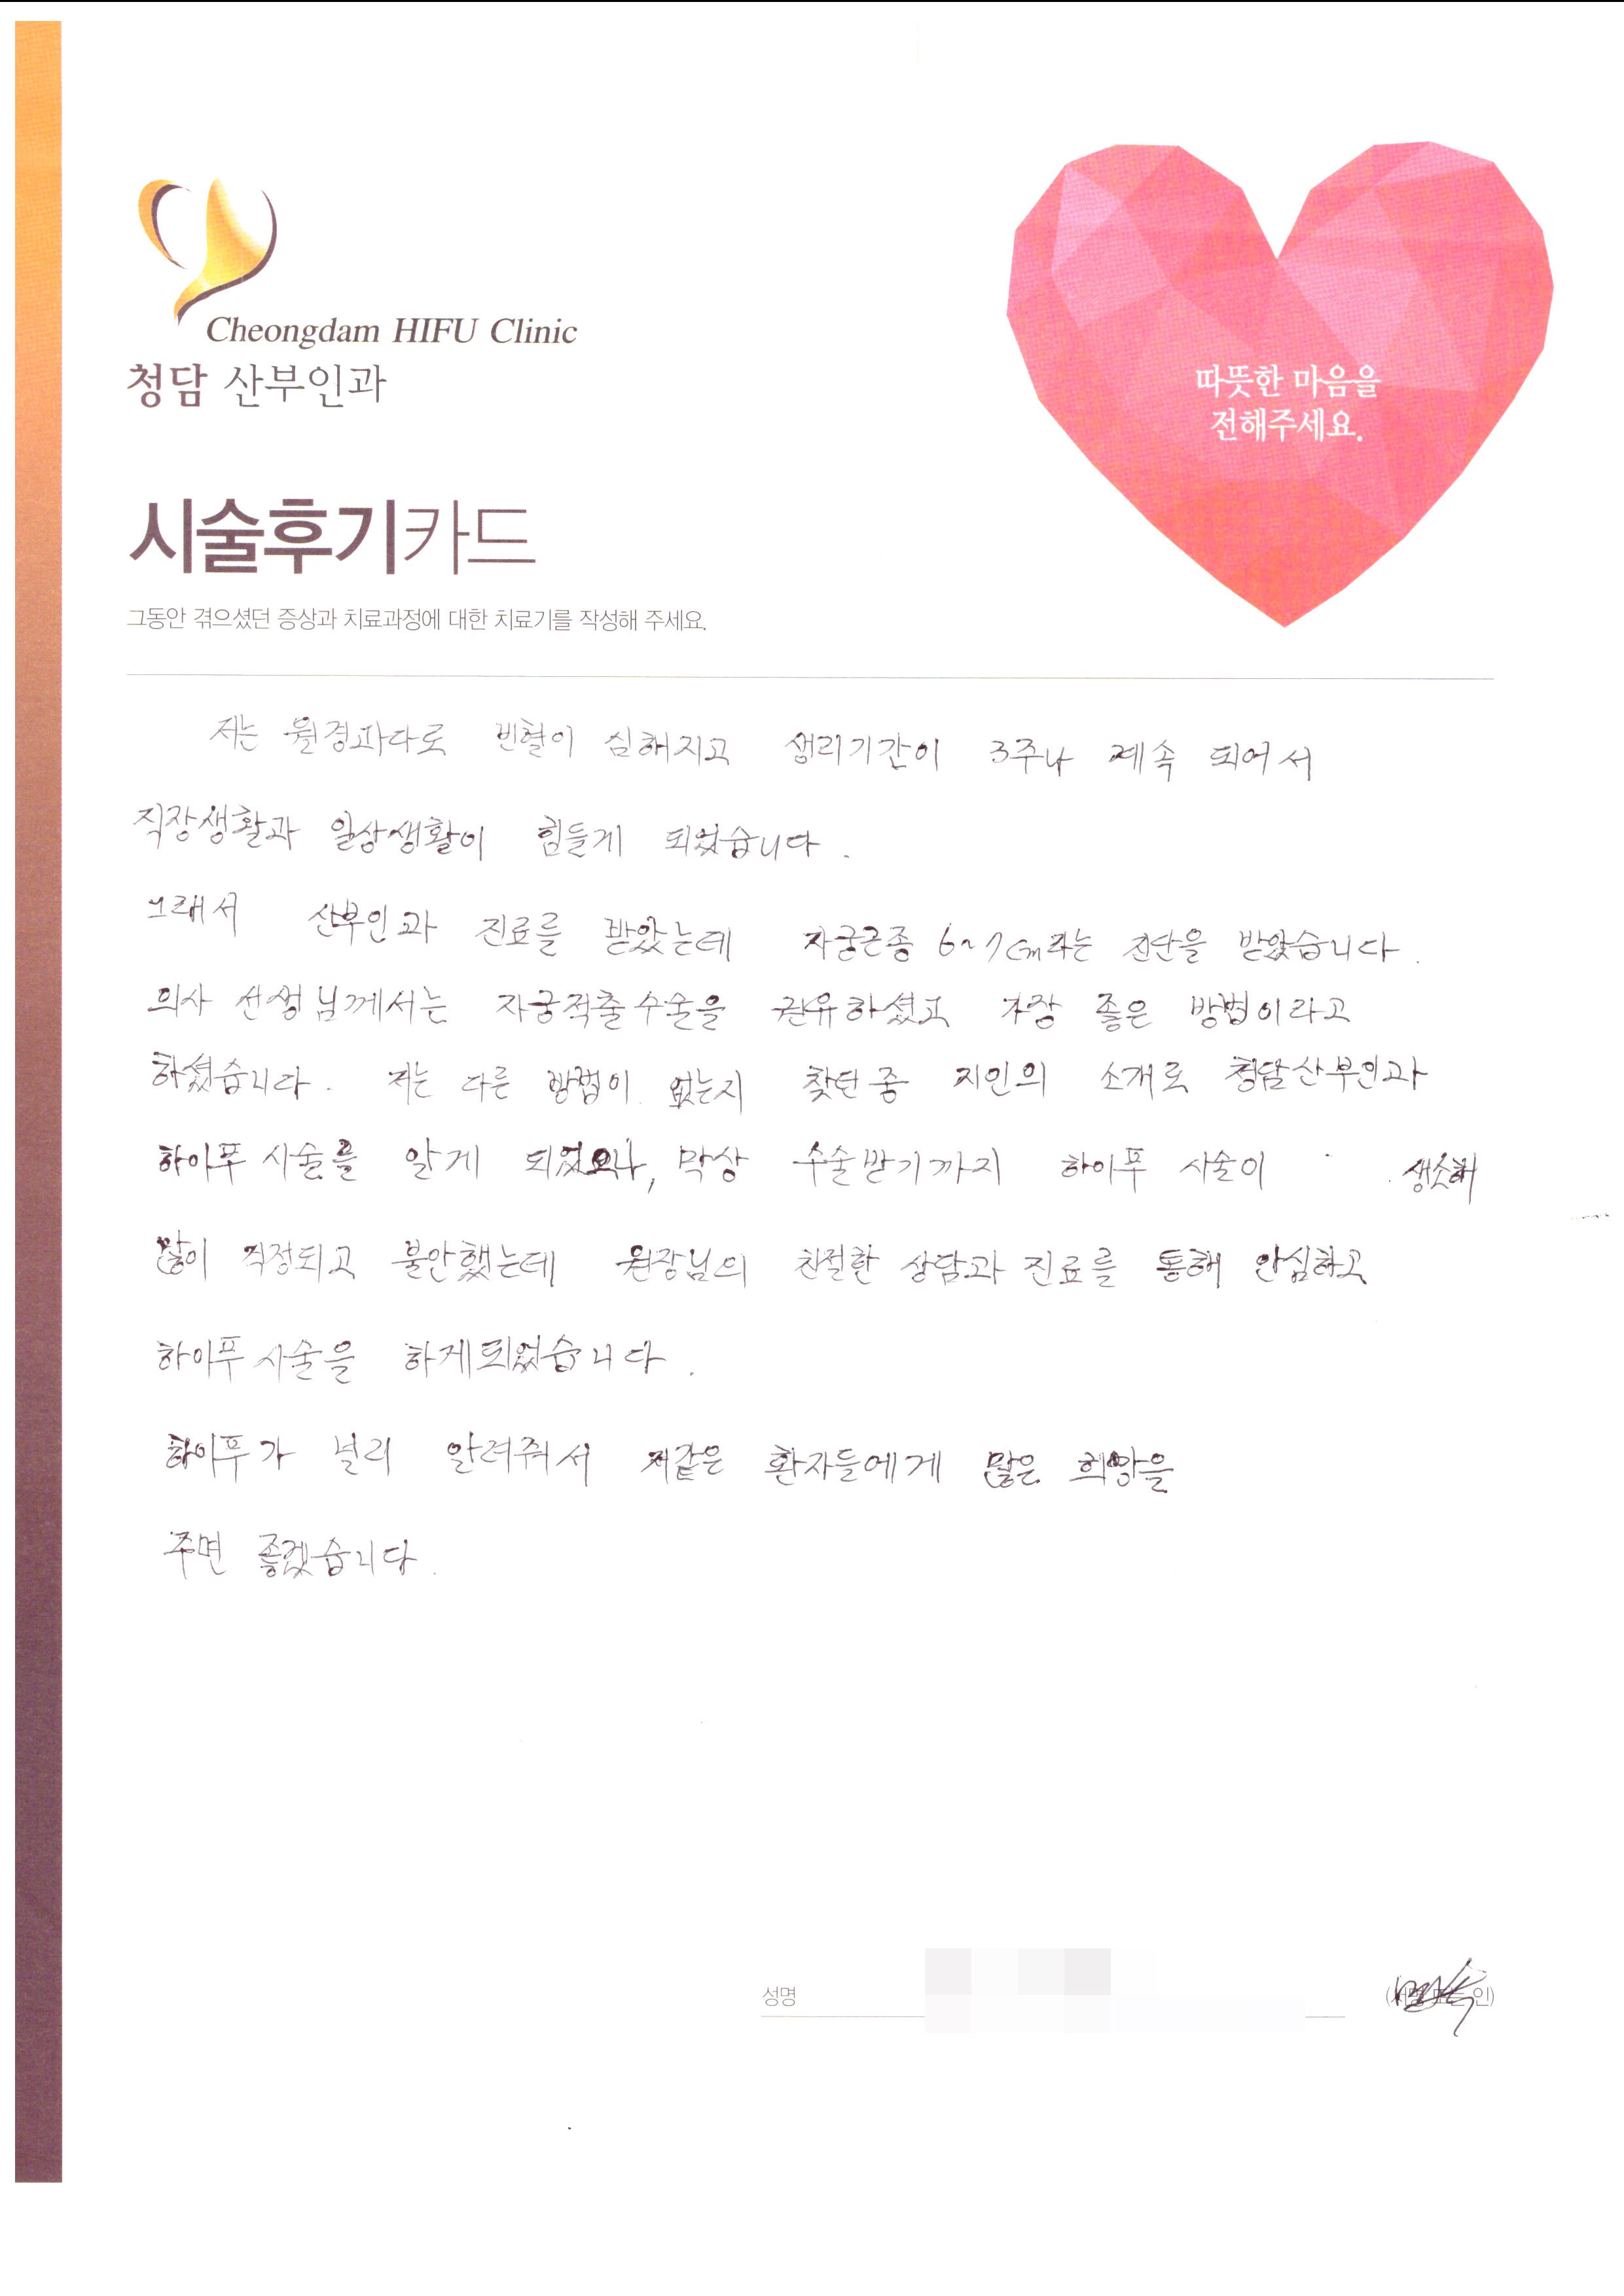 Cheongdam HIFU Clinic
청담 산부인과
따뜻한 마음을
전해주세요.
시술후기카드
그동안 겪으셨던 증상과 치료과정에 대한 치료기를 작성해 주세요.
저는 월경과다로 빈혈이 심해지고 생리기간이 3주나 계속 되어서
직장생활과 일상생활이 힘들게 되었습니다.
그래서 산부인과 진료를 받았는데 자궁근종 6~7cm라는 진단을 받았습니다.
의사 선생님께서는 자궁적출수술을 권유하셨고 가장 좋은 방법이라고
하셨습니다. 저는 다른 방법이 없는지 찾던중 지인의 소개로 청담산부인과
하이푸 시술를 알게 되었으나, 막상 수술받기까지 하이푸 시술이 생소해
많이 걱정되고 불안했는데 원장님의 친절한 상담과 진료를 통해 안심하고
하이푸시술을 하게되었습니다.
하이푸가 널리 알려줘서 저같은 환자들에게 많은 희망을
주면 좋겠습니다.
성명 인)